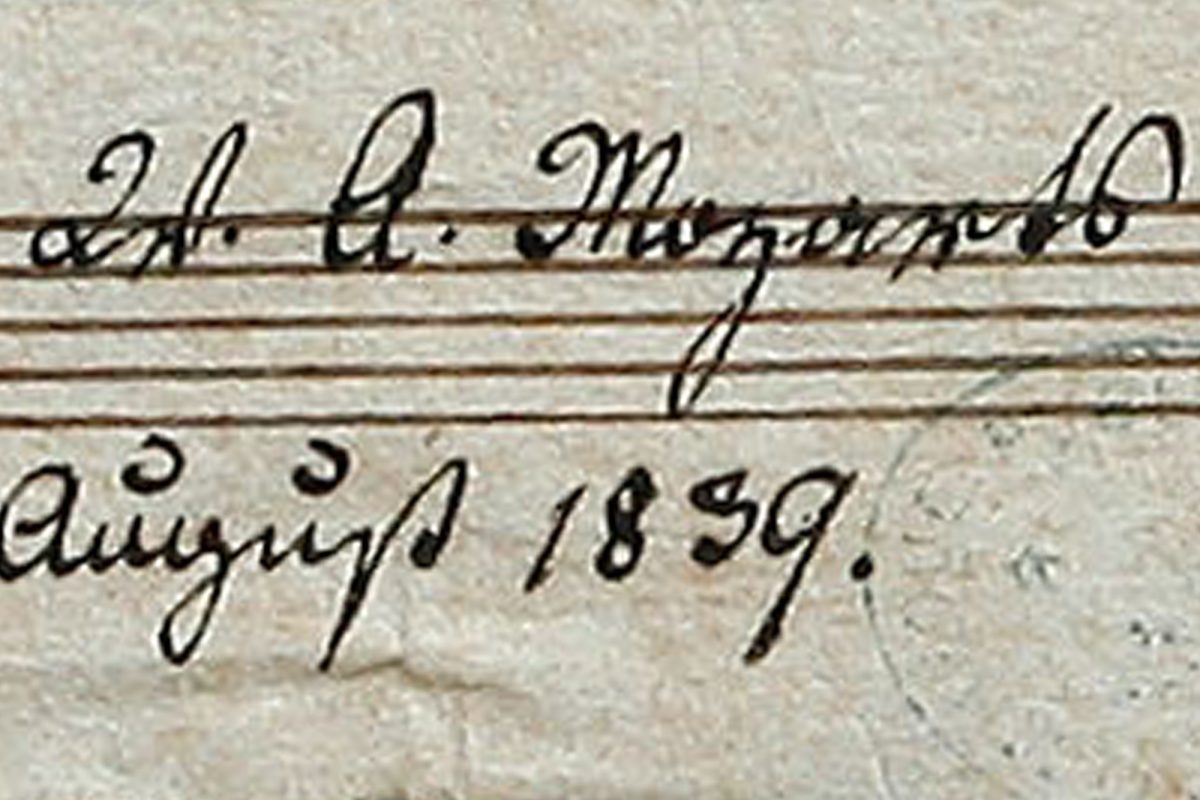 W. A. Mozarts
August 1839.